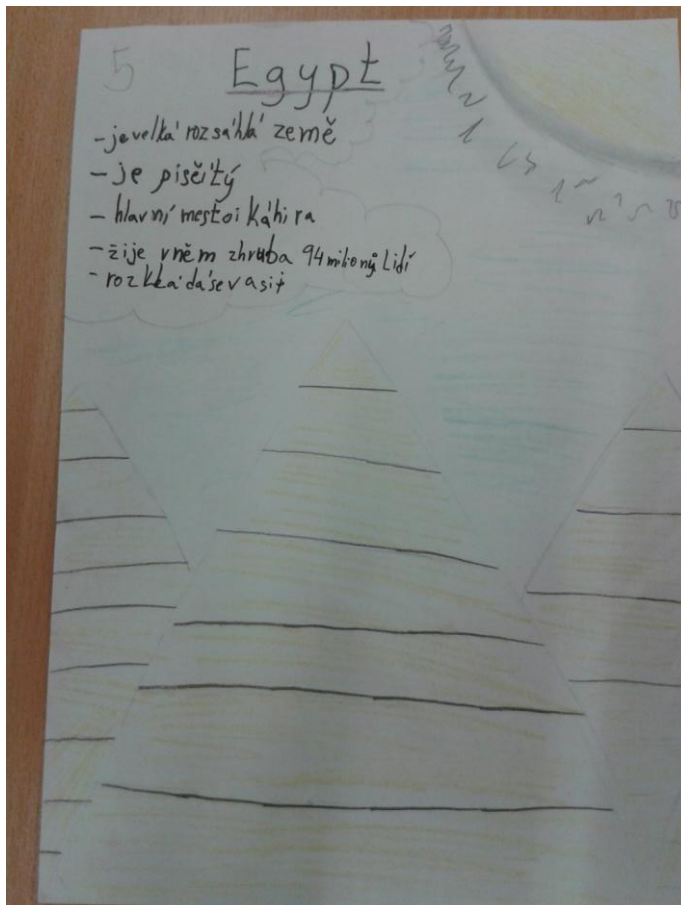 5
Egypt
- je velká rozsáhlá země
- je písčitý
- hlavní mestoi Káhira
- žije vněm zhruba 94 milionů Lidí
- rozkládá se v asii